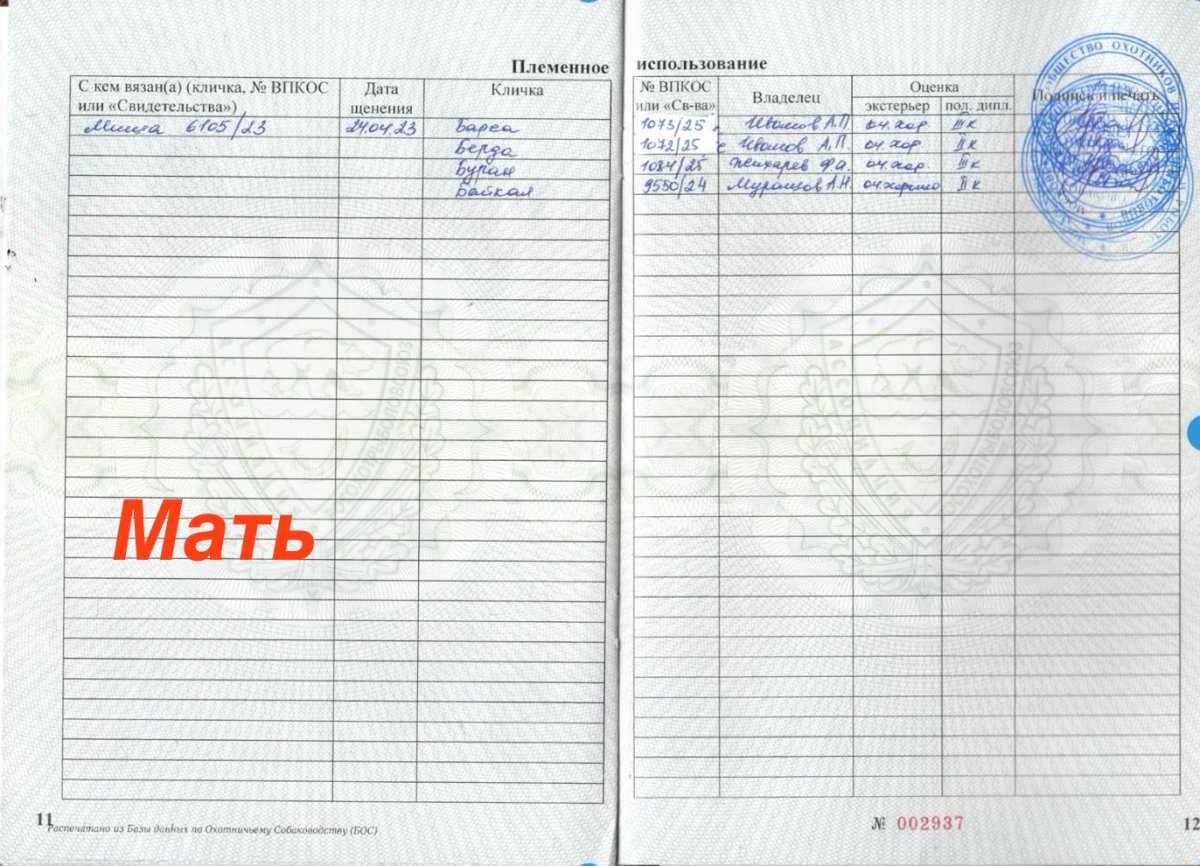 Племенное использование
С кем вязан(а) (кличка, № ВПКОС или «Свидетельства»)
Дата щенения
Кличка
№ ВПКОС или «Св-ва»
Владелец
Оценка
экстерьер
пол. дипл.
Подпись и печать
Миша 6105/23 24.04.23 Барса 1073/25 Иванов А.П. оч.хор III к
Берда 1072/25 Иванов А.П. оч.хор II к
Буран 1084/25 Ф.А. оч.хор III к
Байкал 9550/24 А.Н. оч.хорошо II к
Мать
11
Распечатано из Базы данных по Охотничьему Собаководству (БОС)
№ 002937
12